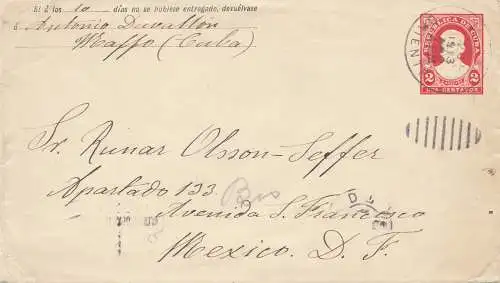 Si á los 10 días no se hubiese entregado, devuélvase
á Antonio Duvallón
Maffo (Cuba)
REPUBLICA DE CUBA
2 2
DOS CENTAVOS
Sr. Runar Olsson-Seffer
Apartado 133
Avenida S. Francisco
Mexico. D. F.